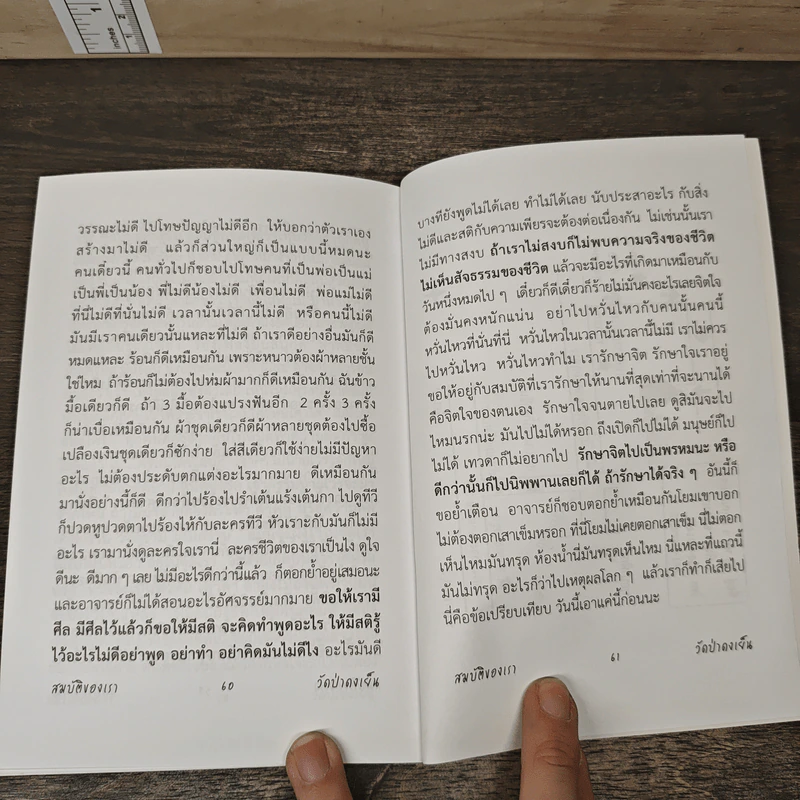 inches 1 2
วรรณะไม่ดี ไปโทษปัญญาไม่ดีอีก ให้บอกว่าตัวเราเอง
สร้างมาไม่ดี แล้วก็ส่วนใหญ่ก็เป็นแบบนี้หมดนะ
คนเดี๋ยวนี้ คนทั่วไปก็ชอบไปโทษคนที่เป็นพ่อเป็นแม่
เป็นพี่เป็นน้อง พี่ไม่ดีน้องไม่ดี เพื่อนไม่ดี พ่อแม่ไม่ดี
ที่นี่ไม่ดีที่นั่นไม่ดี เวลานั้นเวลานี้ไม่ดี หรือคนนี้ไม่ดี
มันมีเราคนเดียวนั้นแหละที่ไม่ดี ถ้าเราดีอย่างอื่นมันก็ดี
หมดแหละ ร้อนก็ดีเหมือนกัน เพราะหนาวต้องผ้าหลายชั้น
ใช่ไหม ถ้าร้อนก็ไม่ต้องไปห่มผ้ามากก็ดีเหมือนกัน ฉันข้าว
มื้อเดียวก็ดี ถ้า 3 มื้อต้องแปรงฟันอีก 2 ครั้ง 3 ครั้ง
ก็น่าเบื่อเหมือนกัน ผ้าชุดเดียวก็ดีผ้าหลายชุดต้องไปซื้อ
เปลืองเงินชุดเดียวก็ซักง่าย ใส่สีเดียวก็ใช้ง่ายไม่มีปัญหา
อะไร ไม่ต้องประดับตกแต่งอะไรมากมาย ดีเหมือนกัน
มานั่งอย่างนี้ก็ดี ดีกว่าไปร้องไปรำเต้นแร้งเต้นกา ไปดูทีวี
ก็ปวดหูปวดตาไปร้องไห้กับละครทีวี หัวเราะกับมันก็ไม่มี
อะไร เรามานั่งดูละครใจเรานี่ ละครชีวิตของเราเป็นไง ดูใจ
ดีนะ ดีมาก ๆ เลย ไม่มีอะไรดีกว่านี้แล้ว ก็ตอกย้ำอยู่เสมอนะ
และอาจารย์ก็ไม่ได้สอนอะไรอัศจรรย์มากมาย ขอให้เรามี
ศีล มีศีลไว้แล้วก็ขอให้มีสติ จะคิดทำพูดอะไร ให้มีสติรู้
ไว้อะไรไม่ดีอย่าพูด อย่าทำ อย่าคิดมันไม่ดีไง อะไรมันดี
สมบัติของเรา 60 วัดป่าดงเย็น
บางทียังพูดไม่ได้เลย ทำไม่ได้เลย นับประสาอะไร กับสิ่ง
ไม่ดีและสติกับความเพียรจะต้องต่อเนื่องกัน ไม่เช่นนั้นเรา
ไม่มีทางสงบ ถ้าเราไม่สงบก็ไม่พบความจริงของชีวิต
ไม่เห็นสัจธรรมของชีวิต แล้วจะมีอะไรที่เกิดมาเหมือนกับ
วันหนึ่งหมดไป ๆ เดี๋ยวก็ดีเดี๋ยวก็ร้ายไม่มั่นคงอะไรเลยจิตใจ
ต้องมั่นคงหนักแน่น อย่าไปหวั่นไหวกับคนนั้นคนนี้
หวั่นไหวที่นั่นที่นี่ หวั่นไหวในเวลานั้นเวลานี้ไม่มี เราไม่ควร
ไปหวั่นไหว หวั่นไหวทำไม เรารักษาจิต รักษาใจเราอยู่
ขอให้อยู่กับสมบัติที่เรารักษาให้นานที่สุดเท่าที่จะนานได้
คือจิตใจของตนเอง รักษาใจจนตายไปเลย ดูสิมันจะไป
ไหมนรกน่ะ มันไปไม่ได้หรอก ถึงเปิดก็ไปไม่ได้ มนุษย์ก็ไป
ไม่ได้ เทวดาก็ไม่อยากไป รักษาจิตไปเป็นพรหมนะ หรือ
ดีกว่านั้นก็ไปนิพพานเลยก็ได้ ถ้ารักษาได้จริง ๆ อันนี้ก็
ขอย้ำเตือน อาจารย์ก็ชอบตอกย้ำเหมือนกันโยมเขาบอก
ไม่ต้องตอกเสาเข็มหรอก ที่นี่โยมไม่เคยตอกเสาเข็ม นี่ไม่ตอก
เห็นไหมมันทรุด ห้องน้ำนี่มันทรุดเห็นไหม นี่แหละที่แถวนี้
มันไม่ทรุด อะไรก็ว่าไปเหตุผลโลก ๆ แล้วเราก็ทำก็เสียไป
นี่คือข้อเปรียบเทียบ วันนี้เอาแค่นี้ก่อนนะ
สมบัติของเรา 61 วัดป่าดงเย็น